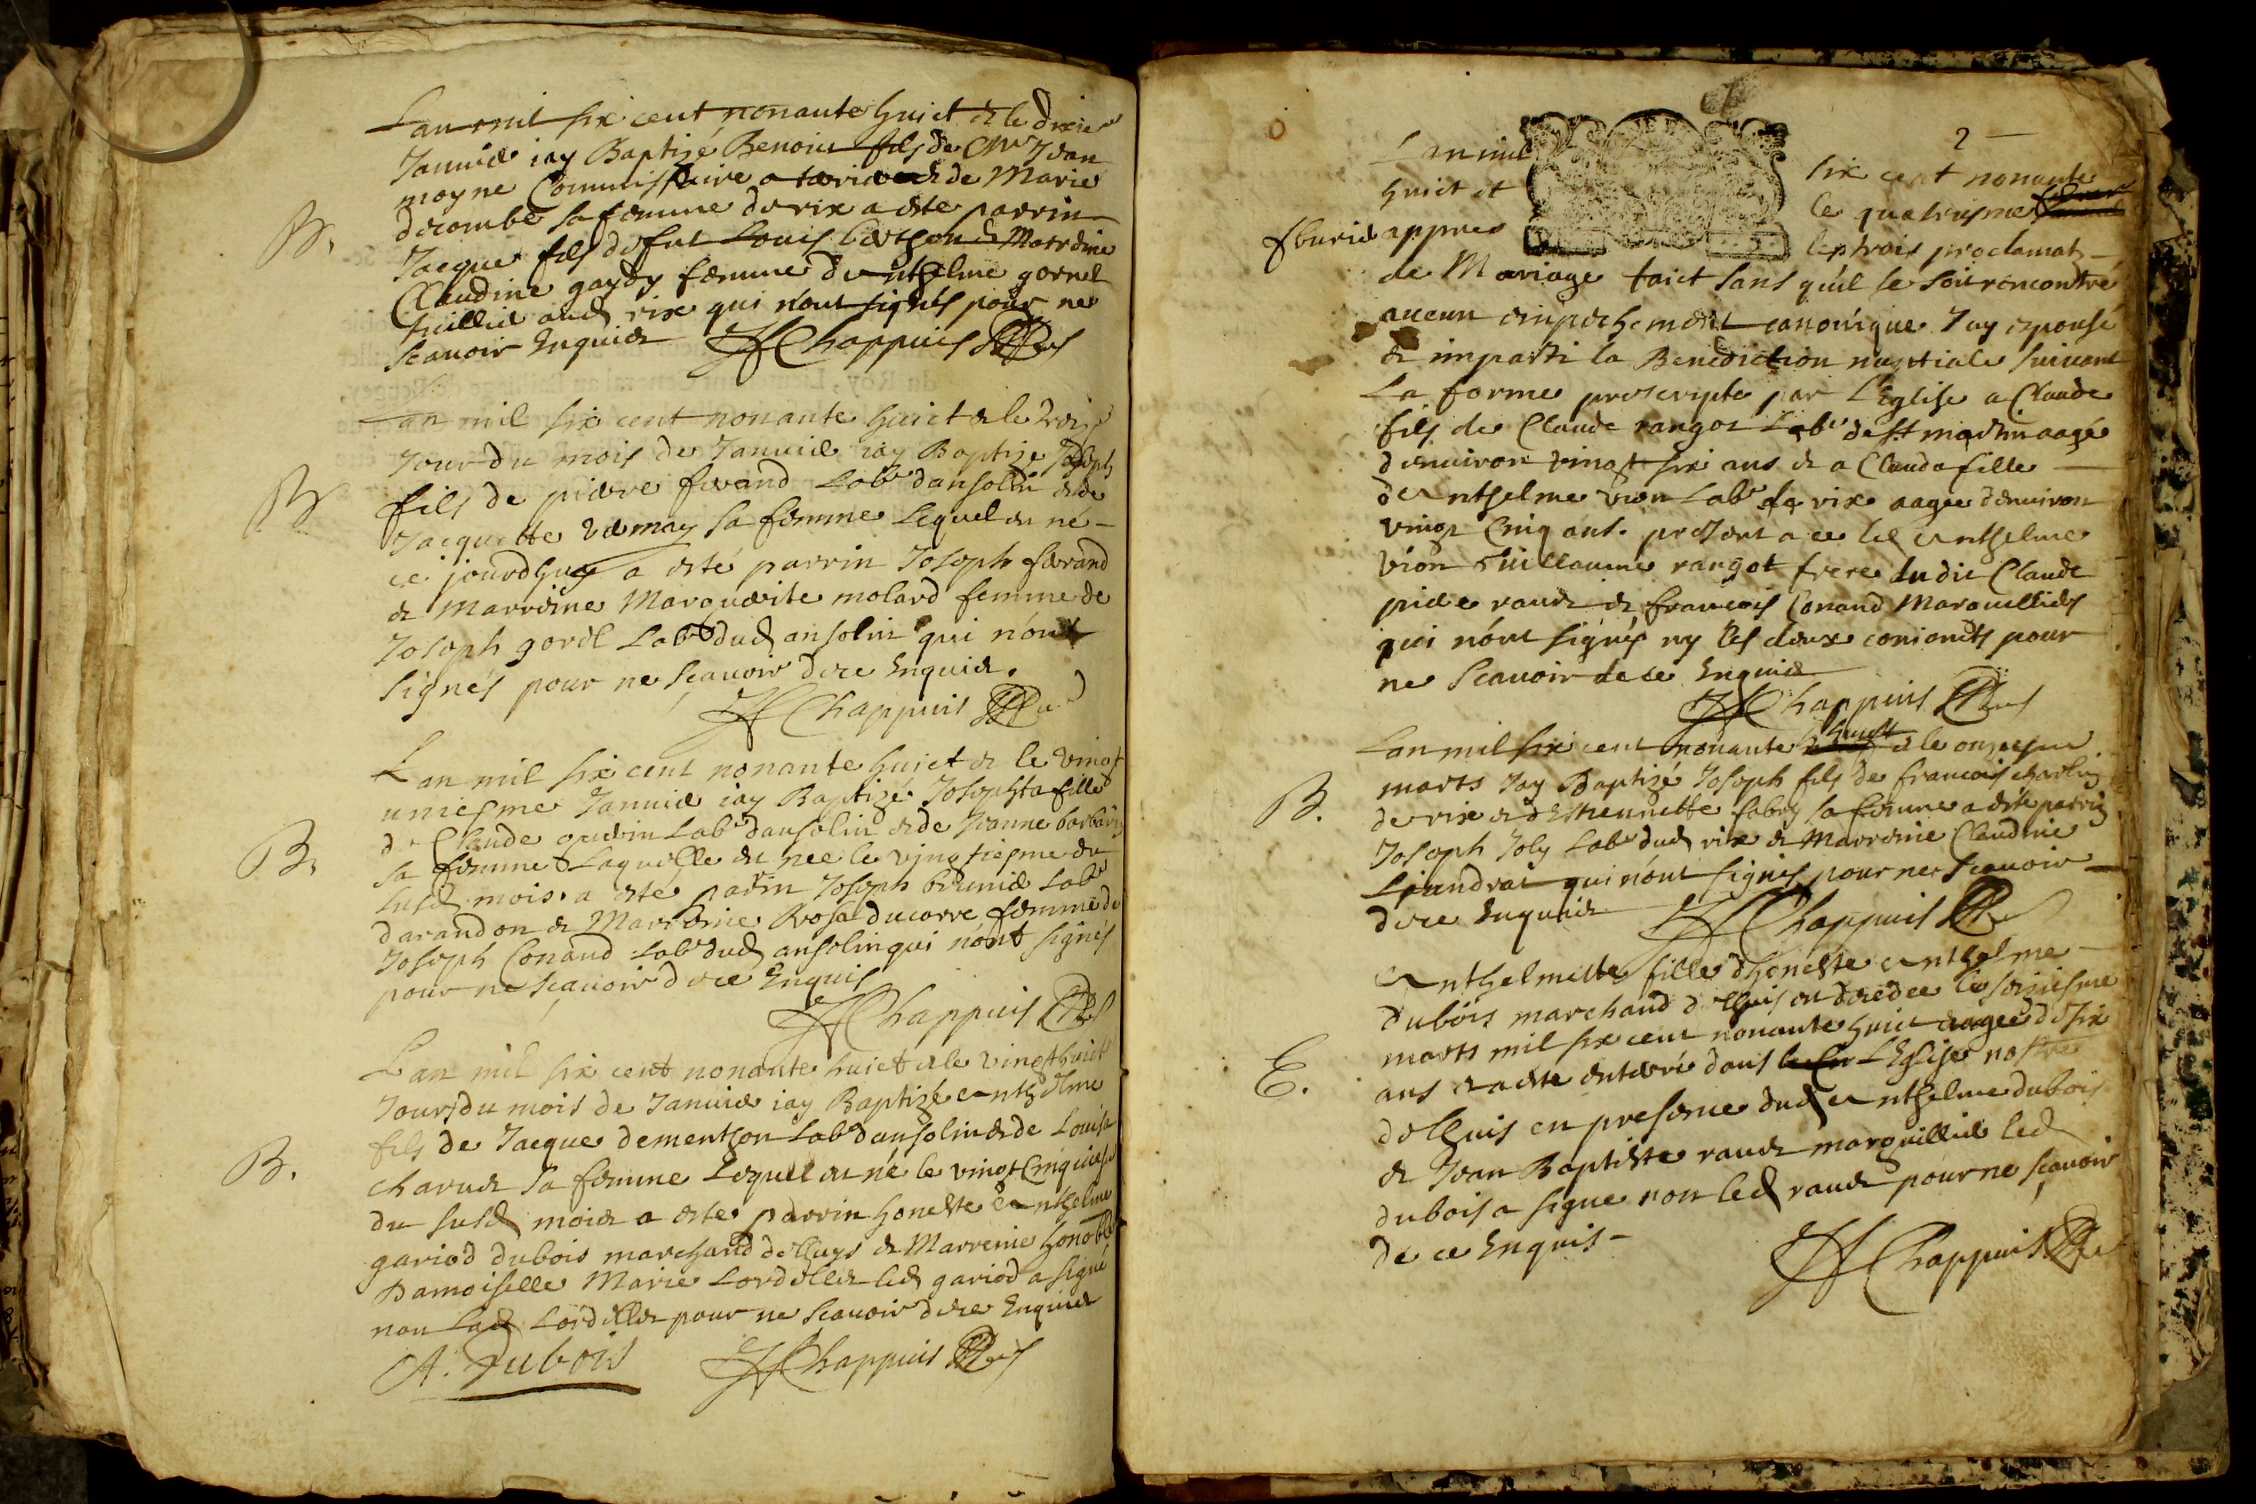 Lan mil six cent nonante huict & le dixie
Januier iay Baptizé Benoist fils de Mre Jean
moyne Commissaire a terrier & de Marie
decombe sa femme de rix a este parrin
B.
Jacque fils de fut Louis berthon & Marreine
Claudine gaydy femme dAnthelme gorrel
huillier dud rix qui nont signés pour ne
scauoir Enquis HChappuis
Lan mil six cent nonante huict & le
Jour du mois de Januier iay Baptizé Joseph
B
fils de pierre ferrand Labr dansolin & de
Jacquette vemay sa femme Lequel est né
ce jourdhuy a esté parrin Joseph ferrand
& Marreine Marguerite molard femme de
Joseph gorel Labr dud ansolin qui nont
signés pour ne scauoir de ce Enquis.
HChappuis
Lan mil six cent nonante huict & le vingt
uniesme Januier iay Baptizé Josephta fille
de Claude Labr dansolin & de Jeanne
B.
sa femme Laquelle est nee le vingtiesme du
susd mois. a esté parrin Joseph brunier Labr
darandon & Marreine Rose ducarre femme de
Joseph Conand Labr dud ansolin qui nont signés
pour ne scauoir de ce Enquis
HChappuis
Lan mil six cent nonante huict & le vingt huict
Jour du mois de Januier iay Baptizé Anthelme
fils de Jacque dementhon Labr dansolin & de Louise
B.
charuet sa femme Lequel est né le vingt Cinquiesme
du susd mois a esté parrin honeste Anthelme
gariod dubois marchand dolluys & Marreine honoble
Damoiselle Marie Lordellet led gariod a signé
non Lad Lordellet pour ne scauoir de ce Enquise
A. Dubois HChappuis
2
Lan mil six cent nonante
huict et le quatriesme
feburier appres les trois proclamats
de Mariage faict sans quil se soit rencontré
aucun empechement canonique Jay epousé
& imparti la Benediction nuptiale suiuant
La forme prescripte par LEglise a Claude
fils de Claude rangot Labr de St martin aagé
denuiron vingt six ans & a Clauda fille
dAnthelme vion Labr de rix aagee denuiron
vingt Cinq ans. present a ce led Anthelme
vion Guillaume rangot frere dudit Claude
pierre raudet & francois Conand Marguilliers
qui nont signés ny les deux conioincts pour
ne scauoir de ce Enquis
HChappuis
Lan mil six cent nonante huict & le onziesme
marts Jay Baptizé Joseph fils de francois
B.
de rix & dEstiennette fabry sa femme a esté parrin
Joseph Joly Labr dud rix & Marreine Claudine
qui nont signés pour ne scauoir
de ce Enquis HChappuis
Anthelmette fille dhoneste Anthelme
dubois marchand dolluis est decedee le seiziesme
marts mil six cent nonante huict aagee de six
E.
ans & a esté enterré dans LEglise nostre
dolluis en presence dud Anthelme dubois
& Jean Baptiste raudet marguillier led
dubois a signe non led raudet pour ne scauoir
de ce Enquis
HChappuis